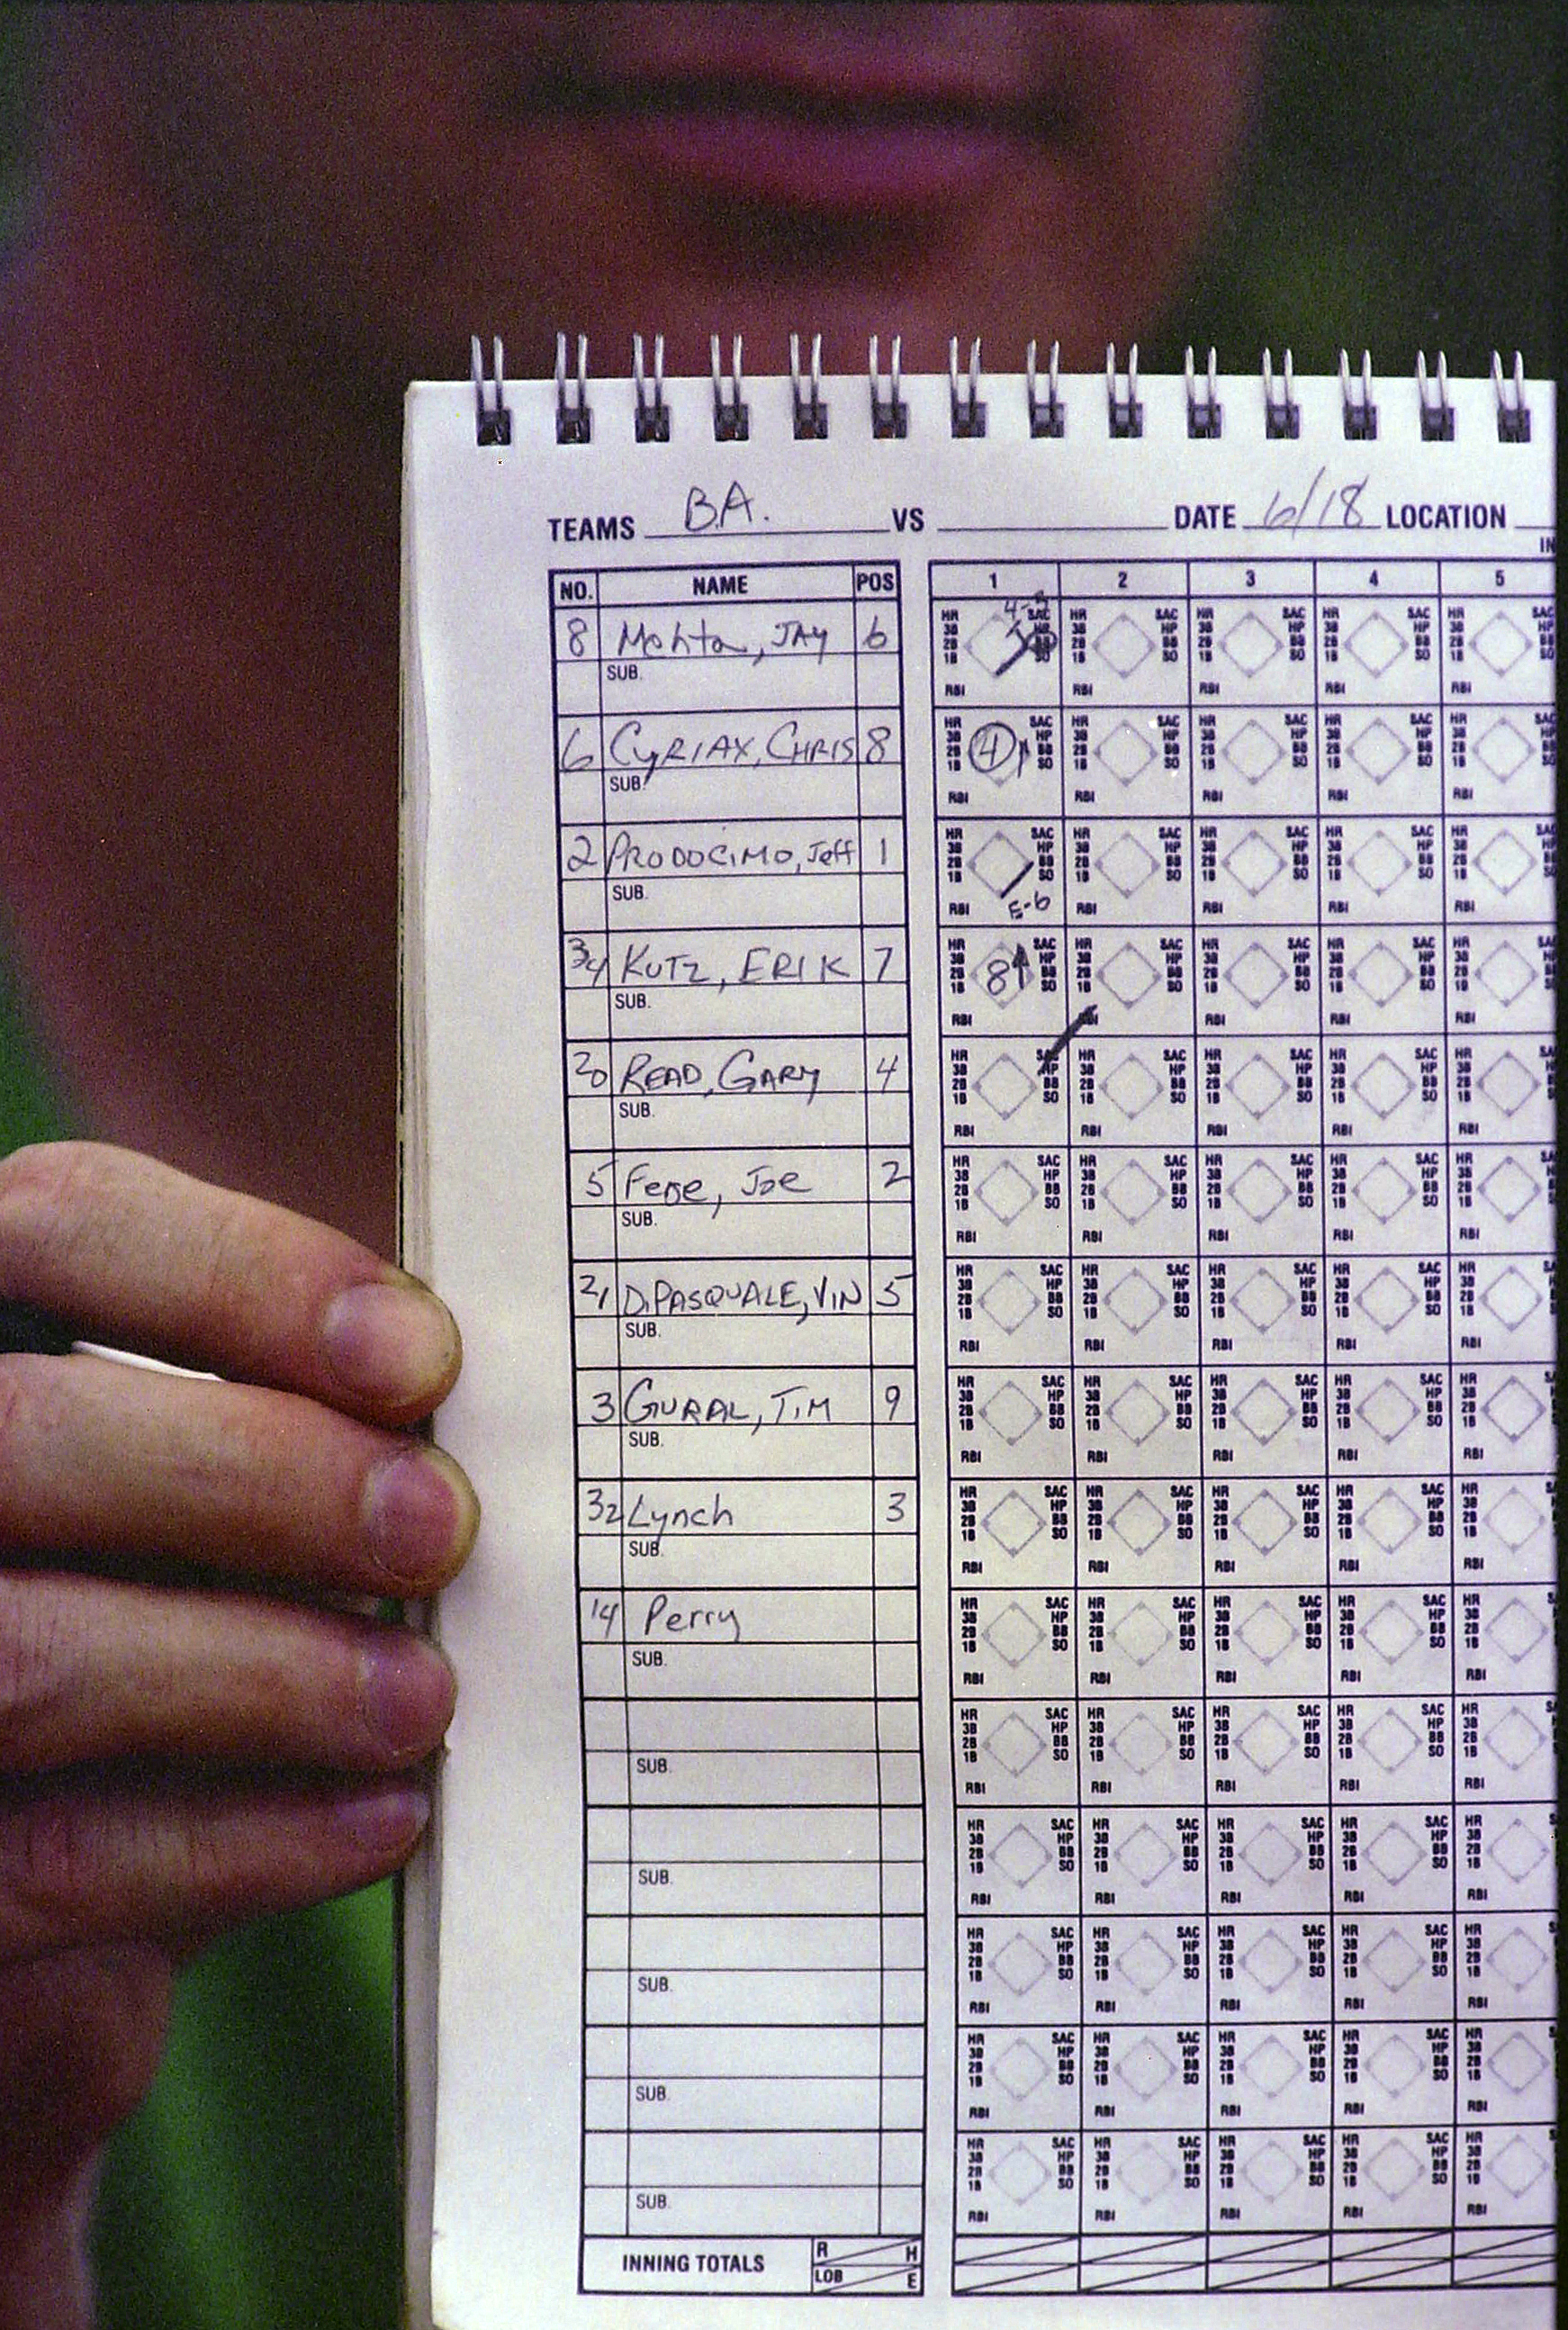 TEAMS B.A. VS DATE 6/18 LOCATION
IN
NO. NAME POS 1 2 3 4 5
8 Mehta, JAY 6
SUB.
HR 3B 2B 1B SAC HP BB SO RBI
6 CYRIAX, CHRIS 8 4
SUB.
2 PRODOCIMO, Jeff 1 E-6
SUB.
34 KUTZ, ERIK 7 8
SUB.
20 READ, GARY 4
SUB.
5 Fede, Joe 2
SUB.
21 DiPASQUALE, VIN 5
SUB.
3 GURAL, TIM 9
SUB.
32 Lynch 3
SUB.
14 Perry
SUB.
SUB.
SUB.
SUB.
SUB.
SUB.
INNING TOTALS R H
LOB E